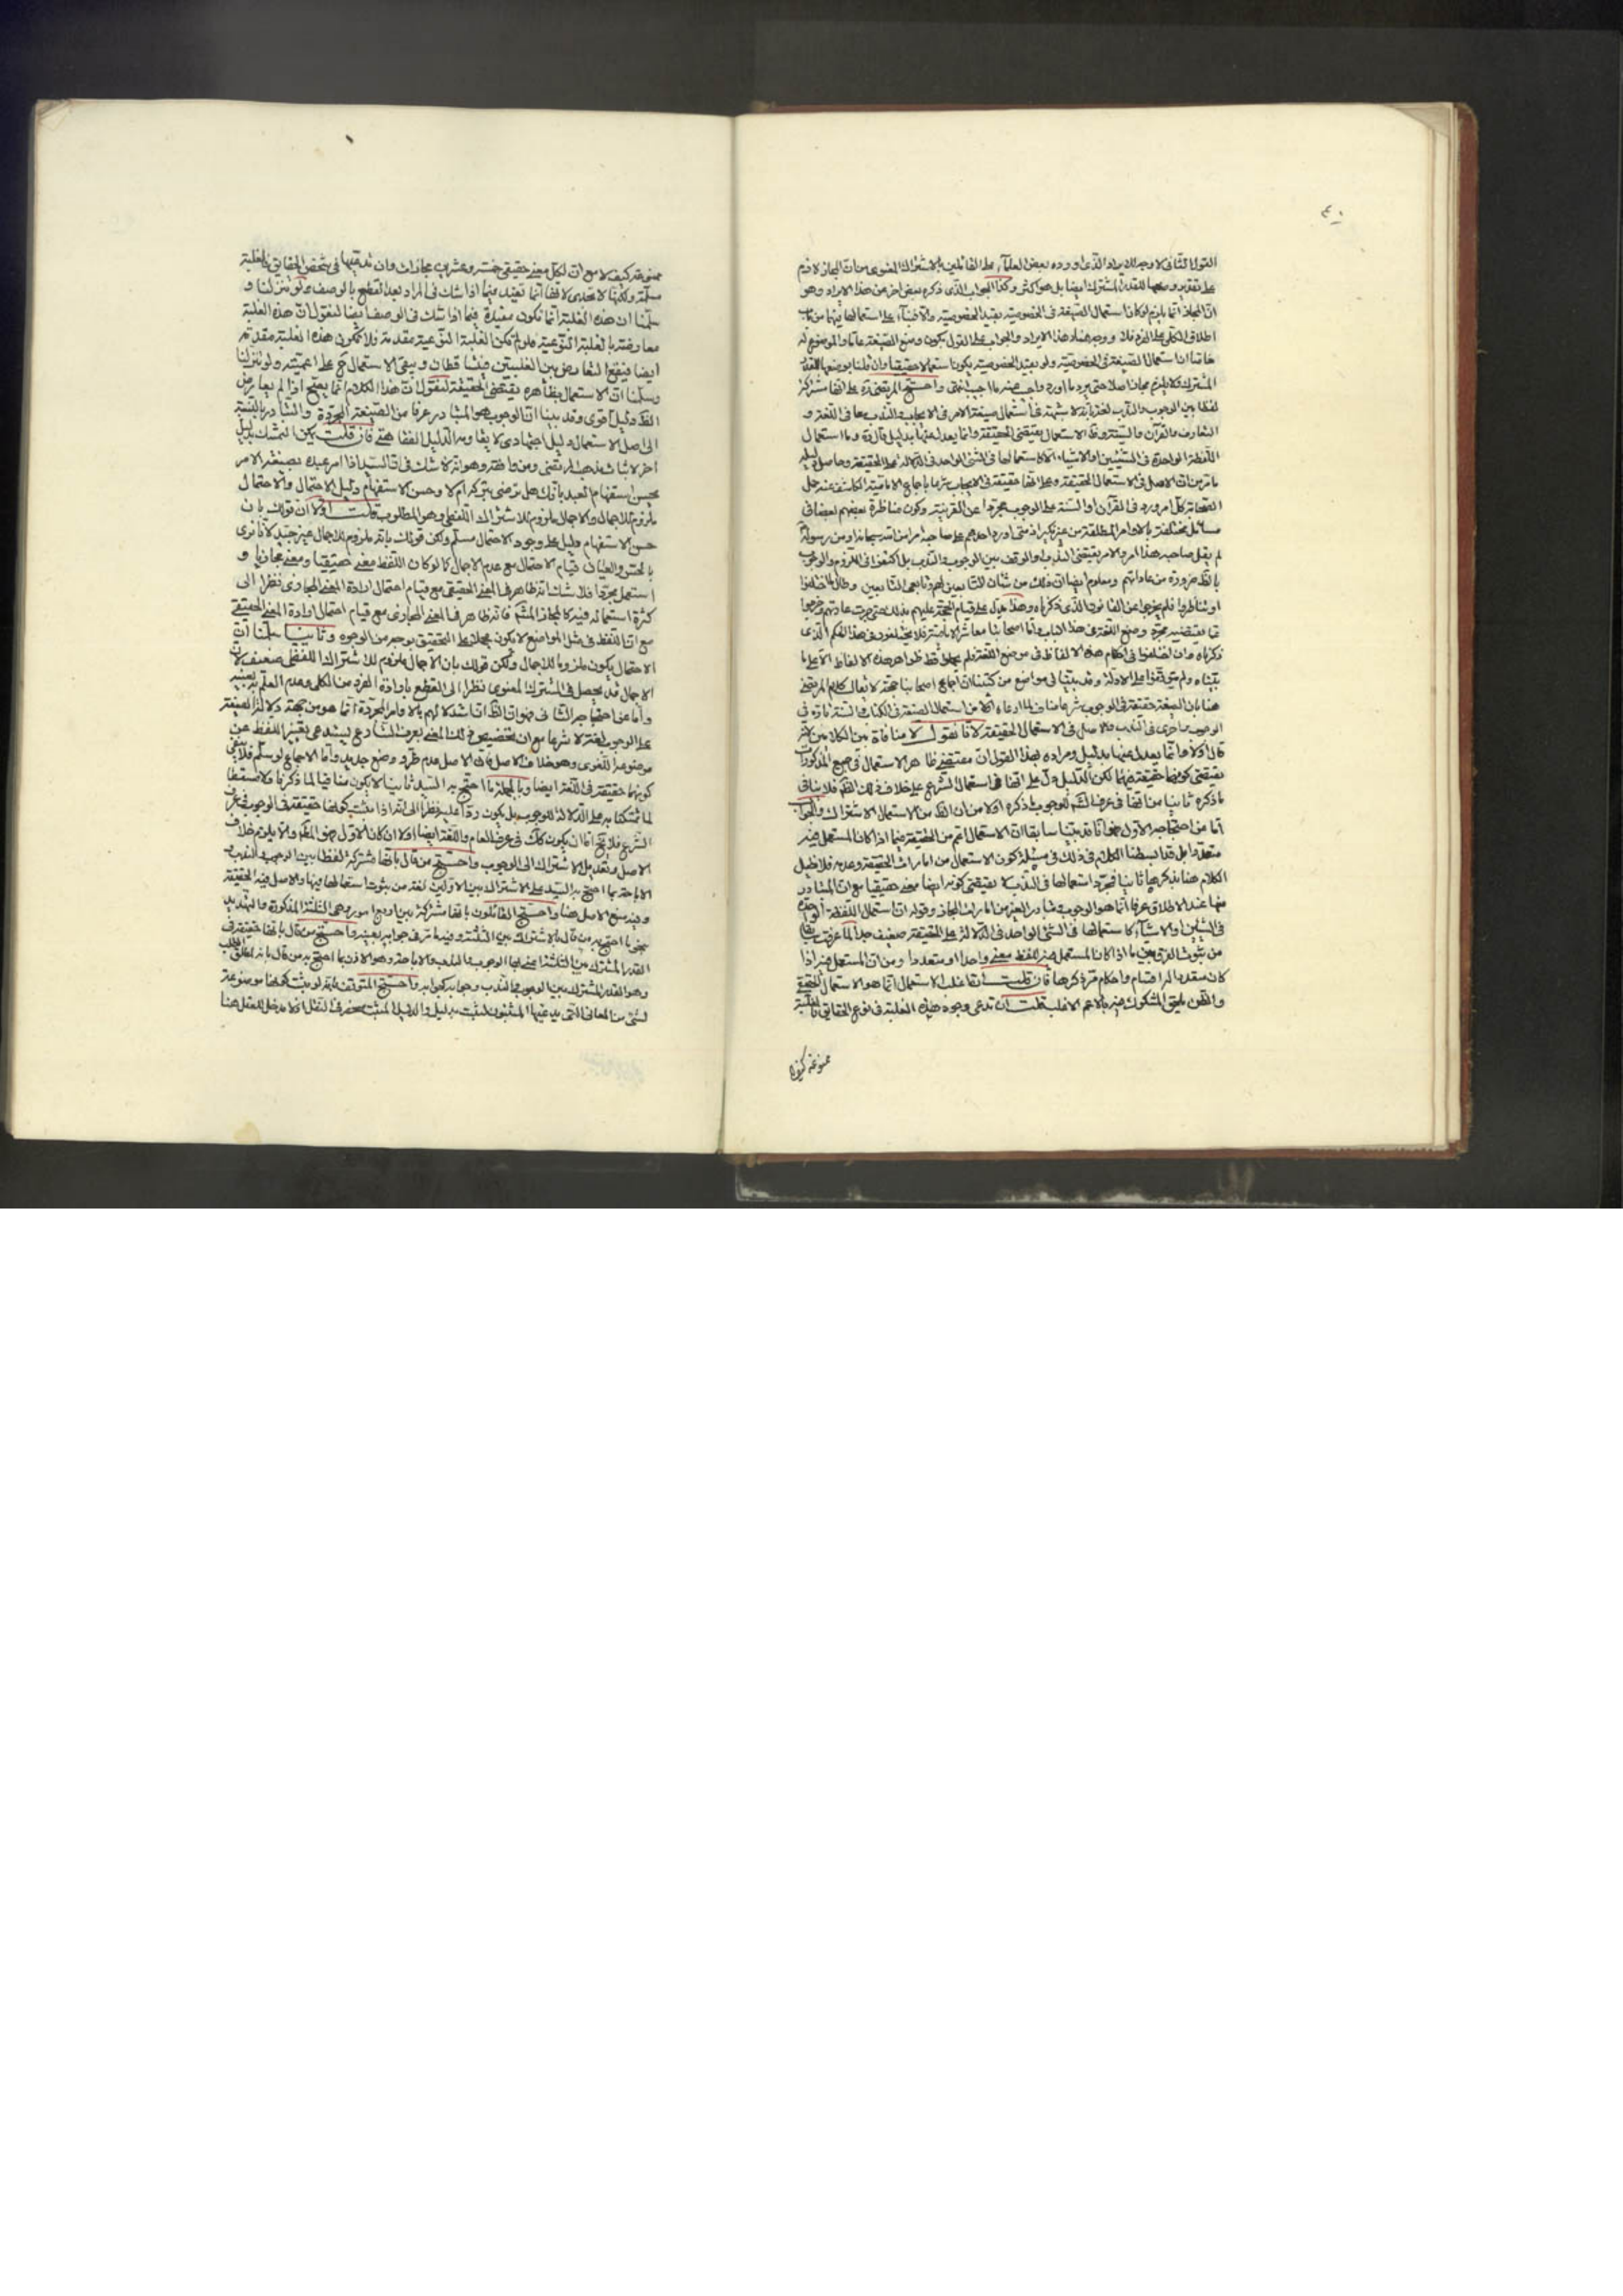 ٤٠
القول الثانى لا وجه للايراد الذى اورده بعض العلماء على القائلين بالاشتراك المعنوى من ان المجاز لازم
على تقدير وضعها للقدر المشترك ايضا بل هو اكثر وكذا الجواب الذى ذكره بعض اخر من هذا الايراد وهو
ان المجاز انما يلزم لو كان استعمال الصيغة فى الخصوصية بقيد الخصوصية واما
اطلاق الكلى على الفرد فلا ووجه هذا الايراد والجواب على القول بكون وضع الصيغة عاما والموضوع له
خاصا ان استعمال الصيغة فى الخصوصية ولو بقيد الخصوصية يكون استعمالا حقيقيا وان قلنا بوضعها للقدر
المشترك فلا يلزم مجاز اصلا حتى يرد ما اورد واجيب عنه بما اجيب انتهى واحتج المرتضى ره على انها مشتركة
لفظا بين الوجوب والندب لغة بانه لا شبهة فى استعمال صيغة الامر فى الايجاب والندب معا فى اللغة و
التعارف والقرآن والسنة وظ الاستعمال يقتضى الحقيقة وانما يعدل عنها بدليل قال ره وما استعمال
اللفظة الواحدة فى الشيئين او الاشياء الا كاستعمالها فى الشئ الواحد فى الدلالة على الحقيقة وحاصل
ما مر من ان الاصل فى الاستعمال الحقيقة وعلى انها حقيقة فى الايجاب شرعا باجماع الامامية
الصحابة كل امر ورد فى القرآن او السنة على الوجوب مجردا عن القرينة وكون مناظرة بعضهم لبعض فى
مسائل مختلفة بالاوامر المطلقة من غير نكير اذ متى اورد احدهم على صاحبه امرا من الله سبحانه او من رسوله
لم يقل صاحبه هذا امر والامر يقتضى الندب او الوقف بين الوجوب والندب بل اكتفوا فى اللزوم والوجوب
بالظ ضرورة من عاداتهم ومعلوم ايضا ان ذلك من شان التابعين لهم وتابعى التابعين وطال ما اختلفوا
او تناظروا فلم يخرجوا عن القانون الذى ذكرناه وهذا يدل على قيام الحجة عليهم بذلك حتى جرت عادتهم وخرجوا
عما يقتضيه مجرد وضع اللغة فى هذا الباب واما اصحابنا معاشر الامامية فلا يختلفون فى هذا الحكم الذى
ذكرناه وان اختلفوا فى احكام هذه الالفاظ فى موضع اللغة ولم يحملوا قط ظواهر هذه الالفاظ الا على ما
بيناه ولم يتوقفوا على الادلة وقد بينا فى مواضع من كتبنا ان اجماع اصحابنا حجة لا يقال كلام المرتضى
هنا بان الصيغة حقيقة فى الوجوب شرعا مناف لما ادعاه اولا من استعمال الصيغة فى الكتاب والسنة تارة فى
الوجوب واخرى فى الندب والاصل فى الاستعمال الحقيقة لانا نقول لا منافاة بين الكلامين
قال اولا وانما يعدل عنها بدليل ومراده بهذا القول ان مقتضى ظاهر الاستعمال فى جميع المذكورات
يقتضى كونها حقيقة فيهما لكن الدليل دل على انها فى استعمال الشرع على خلاف ذلك الظ فلا ينافى
ما ذكره ثانيا من انها فى عرف الشرع للوجوب ما ذكره اولا من ان الظ من الاستعمال الاشتراك والجواب
اما من احتجاجه الاول فهو انا قد بينا سابقا ان الاستعمال اعم من الحقيقة فيما اذا كان المستعمل فيه
متعددا بل قد بسطنا الكلام فى ذلك فى مسئلة كون الاستعمال من امارات الحقيقة وعدمه فلا نطيل
الكلام هنا بذكرها ثانيا فمجرد استعمالها فى الندب لا يقتضى كونه ايضا معنى حقيقيا مع ان المتبادر
منها عند الاطلاق عرفا انما هو الوجوب وتبادر الغير من امارات المجاز وقوله ان استعمال اللفظة الواحدة
فى الشيئين والاشياء كاستعمالها فى الشئ الواحد فى الدلالة على الحقيقة ضعيف جدا لما عرفت سابقا
من ثبوت الفرق بين ما اذا كان المستعمل فيه للفظ معنى واحدا او متعددا ومن ان المستعمل فيه اذا
كان متعددا له اقسام واحكام مرة ذكرها فان قلت انها غلب الاستعمال انما هو الاستعمال الحقيقى
والظن يلحق المشكوك فيه بالاعم الاغلب قلت ان تدعى وجود هذه الغلبة فى نوع الحقايق فالغلبة
ممنوعة كيف لا
ممنوعة كيف لا مع ان لكل معنى حقيقى خمسة وعشرين مجازات وان تدعيها فى شخص الحقايق فالغلبة
مسلمة ولكنها لا تجدى لانها انما تفيد فيما اذا شك فى المراد بعد القطع بالوصف ولو تنزلنا و
سلمنا ان هذه الغلبة انما تكون مفيدة فيما اذا شك فى الوصف ايضا لنقول ان هذه الغلبة
معارضة بالغلبة النوعية فلو لم تكن الغلبة النوعية مقدمة فلا تكون هذه الغلبة مقدمة
ايضا فيقع التعارض بين الغلبتين فيتساقطان ويبقى الاستعمال على اعميته ولو تنزلنا
وسلمنا ان الاستعمال بظاهره يقتضى الحقيقة لنقول ان هذا الكلام انما يصح اذا لم يعارض
الظ دليل اقوى وقد بينا ان الوجوب هو المتبادر عرفا من الصيغة المجردة والتبادر بالنسبة
الى اصل الاستعمال دليل اجتهادى لا يقاومه الدليل الفقاهتى فان قلت يمكن التمسك بدليل
اخر لاثبات مذهب المرتضى ومن وافقه وهو انه لا شك فى ان السيد اذا امر عبده بصيغة الامر
يحسن استفهام العبد بانك هل ترضى بتركه ام لا وحسن الاستفهام دليل الاحتمال والاحتمال
ملزوم للاجمال والاجمال ملزوم للاشتراك اللفظى وهو المطلوب قلت اولا ان قولك بان
حسن الاستفهام دليل على وجود الاحتمال مسلم ولكن قولك بانه ملزوم للاجمال غير جيد لانا نرى
بالحس والعيان قيام الاحتمال مع عدم الاجمال كما لو كان اللفظ معنى حقيقيا ومعنى مجازيا و
استعمل مجردا فلا شك انه ظاهر فى المعنى الحقيقى مع قيام احتمال ارادة المعنى المجازى نظرا الى
كثرة استعماله فيه كالمجاز المشهور فانه ظاهر فى المعنى المجازى مع قيام احتمال ارادة المعنى الحقيقى
مع ان اللفظ فى مثل المواضع لا يكون مجملا على التحقيق بوجه من الوجوه وثانيا سلمنا ان
الاحتمال يكون ملزوما للاجمال ولكن قولك بان الاجمال ملزوم للاشتراك اللفظى ضعيف لان
الاجمال قد يحصل فى المشترك المعنوى نظرا الى القطع بارادة الفرد من الكلى وعدم العلم بتعيينه
واما عن احتجاجه الثانى فهو ان الظ ان استدلالهم بالاوامر المجردة انما هو من جهة دلالة الصيغة
على الوجوب لغة لا شرعا مع ان تخصيص ذلك المعنى بعرف الشارع يستدعى تغيير اللفظ عن
موضوعه اللغوى وهو خلاف الاصل فان الاصل عدم طرو وضع جديد واما الاجماع لو سلم فلا ينفى
كونها حقيقة فى اللغة ايضا وبالجملة ما احتج به السيد ثانيا لا يكون منافيا لما ذكرنا ولا مسقطا
لما تمسكنا به على الدلالة للوجوب بل يكون ردا عليه نظرا الى انه اذا ثبت كونها حقيقة فى الوجوب فى عرف
الشرع فلا يخ اما ان يكون كك فى عرف العام واللغة ايضا او لا ان كان الاول فهو المطلوب والا يلزم خلاف
الاصل وتعديل الاشتراك الى الوجوب واحتج من قال بانها مشتركة لفظا بين الوجوب والندب و
الاباحة بما احتج به السيد على الاشتراك بين الاولين لغة من ثبوت استعمالها فيها والاصل فيه الحقيقة
وفيه منع الاصل هنا واحتج القائلون بانها مشتركة بين اربع امور وهى الثلثة المذكورة والتهديد
بنحو ما احتج به من قال بالاشتراك بين الثلثة وفيه ما مر فى جوابه بعينه واحتج من قال بانها حقيقة فى
القدر المشترك بين الثلثة اعنى بها الوجوب والندب والاباحة وهو الاذن بما احتج به من قال بانه الطلب
وهو القدر المشترك بين الوجوب والندب وجوابه كجوابه واحتج المتوقفون بانه لو ثبت كونها موضوعة
لشئ من المعانى التى يدعيها المثبتون لثبت بدليل والدليل المثبت منحصر فى النقل اذ لا مدخل للعقل هنا